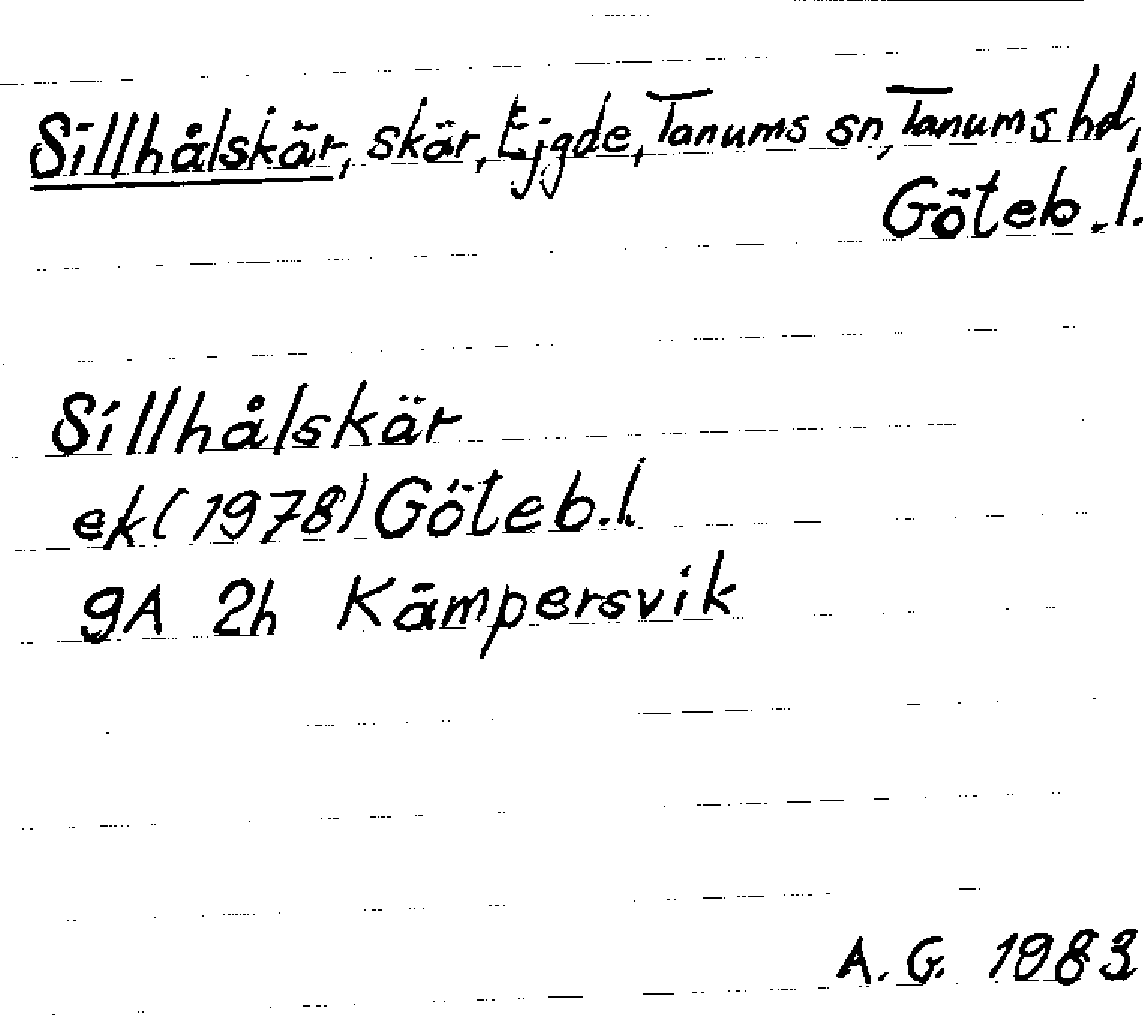 Sillhålskär, skär, Ejgde, Tanums sn, Tanums hd,
Göteb. l.
Sillhålskär
ek (1978) Göteb. l.
9A 2h Kämpersvik
A. G. 1983